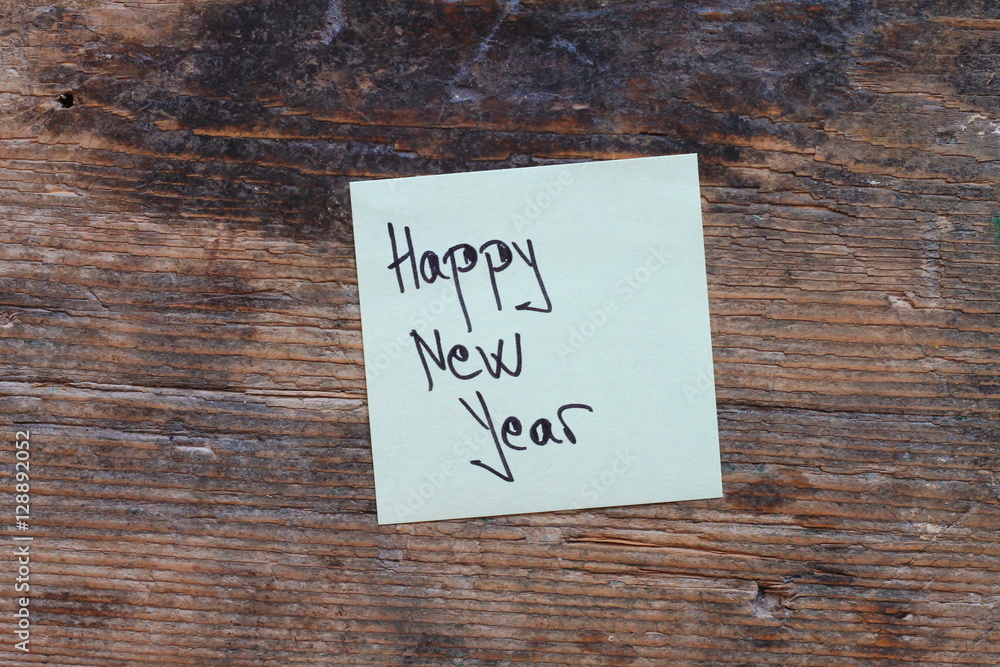 Happy
New
Year
Adobe Stock | #128892052